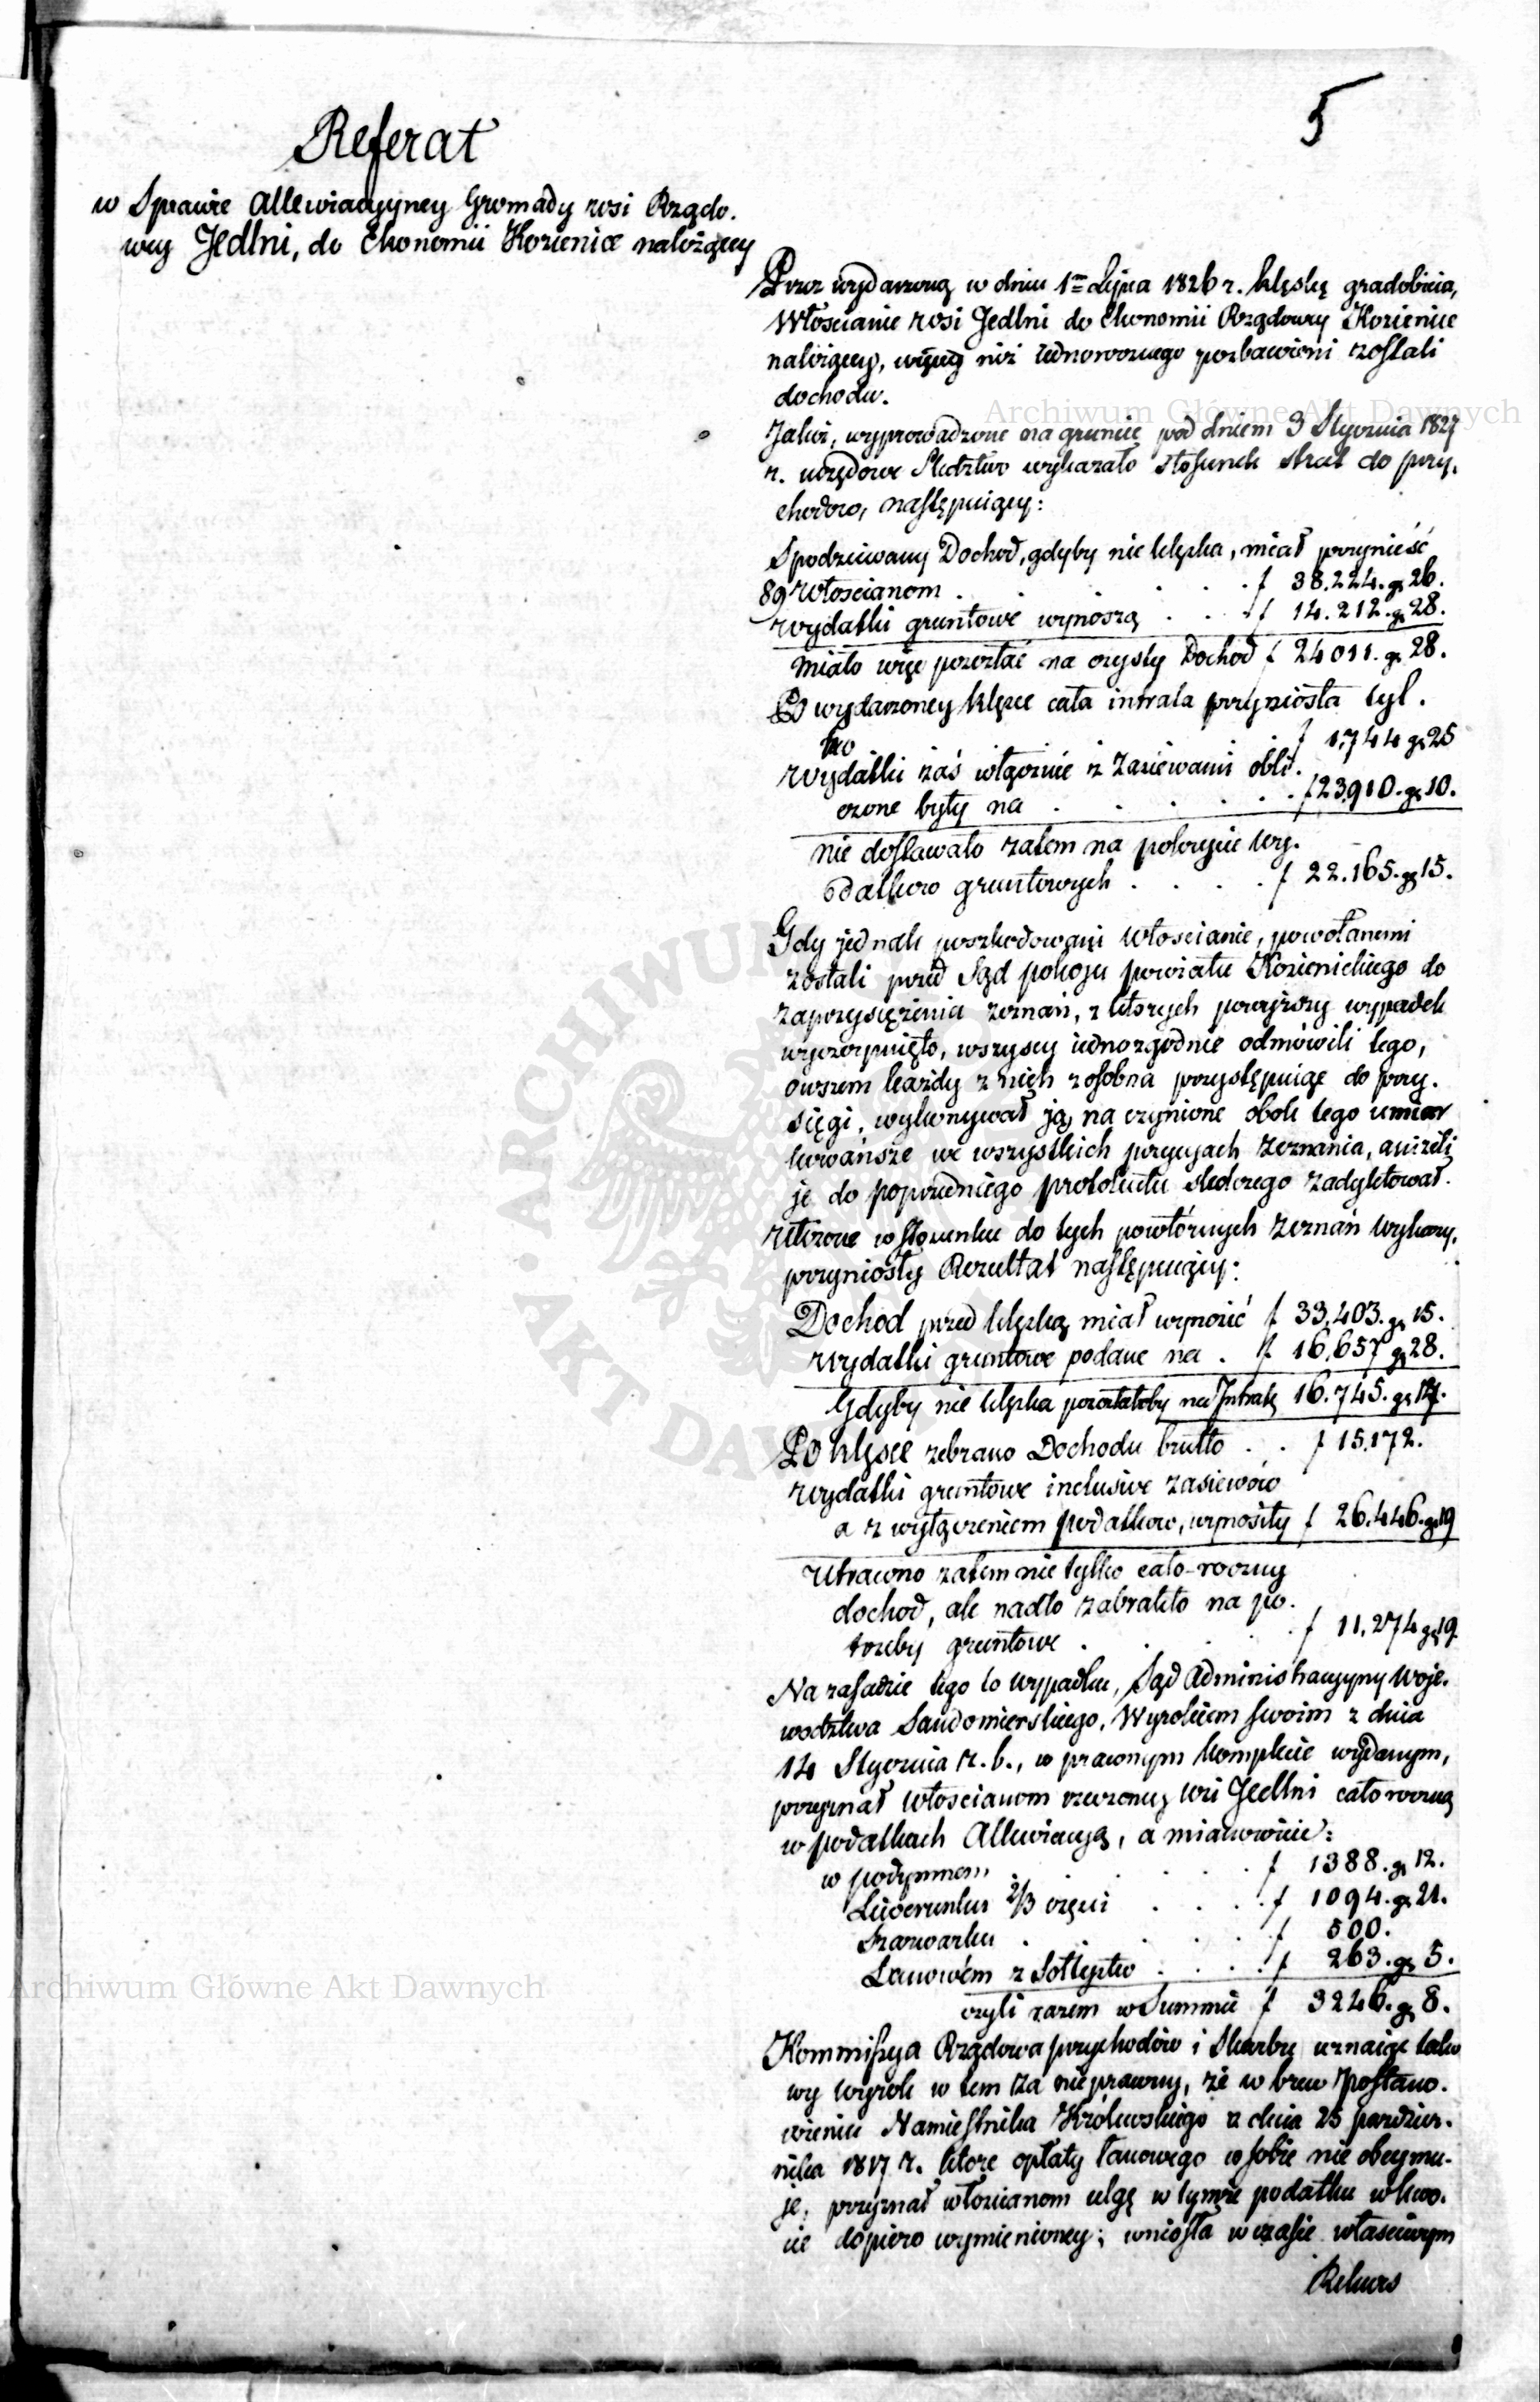 5
Referat
w Sprawie Allewiacyyney Gromady wsi Rządo.
wey Jedlni, do Ekonomii Kozienice należącey
Przez wydarzoną w dniu 1m Lipca 1826 r. klęskę gradobicia,
Włościanie wsi Jedlni do Ekonomii Rządowey Kozienice
należącey, więcey niż iednorocznego pozbawieni zostali
dochodu.
Jakoż, wyprowadzone na gruncie pod dniem 3 Stycznia 1827
r. urzędowe Śledztwo wykazało stosunek strat do przy.
chodow, następuiący:
Spodziewany Dochod, gdyby nie klęska, miał przynieść
89 Włoscianom . . . . f 38.224. gr 26.
Wydatki gruntowe wynoszą . . . f 14.212. gr 28.
Miało więc pozostać na czysty Dochod f 24011. gr 28.
Po wydarzoney klęsce cała intrata przyniosła tyl.
ko . . . . f 1,744 gr 25
Wydatki zaś włącznie z Zasiewami obli.
czone były na . . . . . f 23,910. gr 10.
nie dostawało zatem na pokrycie wy.
datkow gruntowych . . . . f 22.165. gr 15.
Gdy jednak poszkodowani Włoscianie, powołanemi
zostali przed Sąd pokoju powiatu Kozienickiego do
zaprzysiężenia zeznań, z ktorych powyższy wypadek
wyczerpnięto, wszyscy iednozgodnie odmówili tego,
owszem każdy z nich zosobna przystępuiąc do przy.
sięgi, wykonywał ją, na czynione obok tego umiar
kowańsze we wszystkich pozycyach zeznania, aniżeli
je do poprzedniego protokułu śledczego zadyktował.
Utworzone w stosunku do tych powtórnych zeznań wykazy,
przyniosły Rezultat następuiący:
Dochod przed klęską miał wynosić f 33,403. gr 15.
Wydatki gruntowe podane na . f 16,657 gr 28.
Gdyby nie klęska pozostałoby na Intratę 16.745. gr 17.
Po klęsce zebrano Dochodu brutto . . f 15,172.
Wydatki gruntowe inclusive zasiewów
a z wyłączeniem podatkow, wynosiły f 26,446. gr 19
Utracono zatem nie tylko cało-roczny
dochod, ale nadto zabrakło na po.
trzeby gruntowe . . . . f 11,274 gr 19
Na zasadzie tego to wypadku, Sąd Administracyyny Woje.
wodztwa Sandomierskiego, Wyrokiem swoim z dnia
14 Stycznia r. b., w prawnym komplecie wydanym,
przyznał Włoscianom rzeczoney wsi Jedlni cało roczną
w podatkach Allewiacyą, a mianowicie:
w podymnem . . . . . f 1388. gr 12.
Liwerunku 2/3 części . . . . f 1094. gr 21.
Szarwarku . . . . . f 500.
Łanowém z Sołtystw . . . . f 263. gr 5.
czyli razem w Summie f 3246. gr 8.
Kommissya Rządowa przychodów i Skarbu uznaiąc tako
wy wyrok w tem za nieprawny, że w brew Postano.
wieniu Namiestnika Królewskiego z dnia 25 paździer.
nika 1817 r. ktore opłaty łanowego w sobie nie obeymu.
je, przyznał włoscianom ulgę w tymże podatku w kwo.
cie dopiero wymienioney; wniosła w czasie właściwym
Rekurs
Archiwum Główne Akt Dawnych
Archiwum Główne Akt Dawnych
ARCHIWUM
AKT DAW